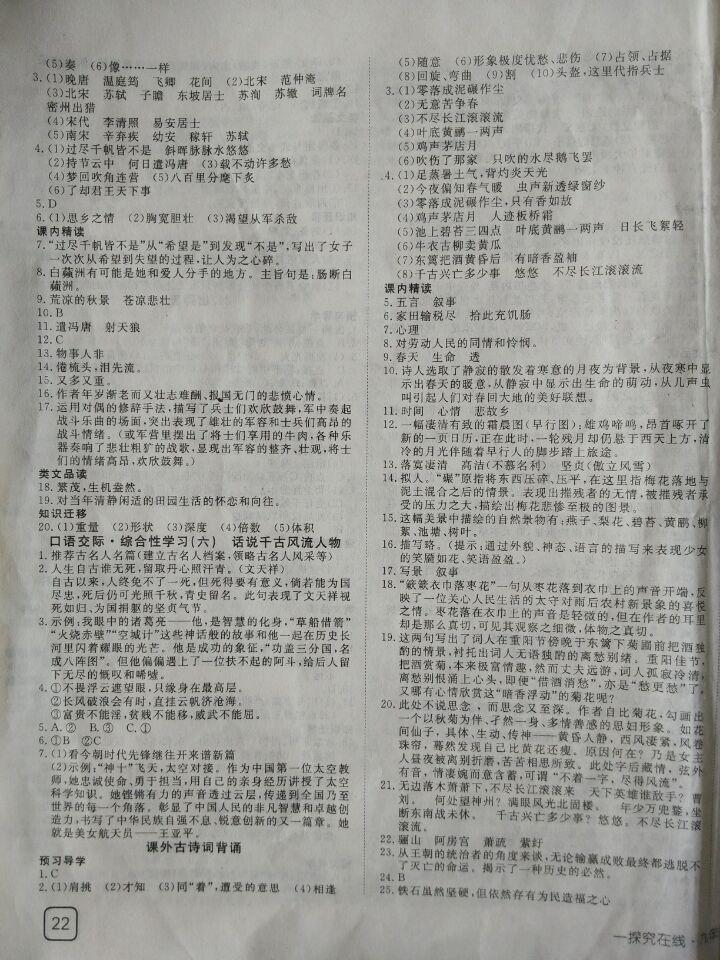 (5)奏　(6)像……一样
3.(1)晚唐　温庭筠　飞卿　花间　(2)北宋　范仲淹
(3)北宋　苏轼　子瞻　东坡居士　苏洵　苏辙　词牌名
密州出猎
(4)宋代　李清照　易安居士
(5)南宋　辛弃疾　幼安　稼轩　苏轼
4.(1)过尽千帆皆不是　斜晖脉脉水悠悠
(2)持节云中　何日遣冯唐　(3)载不动许多愁
(4)梦回吹角连营　(5)八百里分麾下炙
(6)了却君王天下事
5.D
6.(1)思乡之情　(2)胸宽胆壮　(3)渴望从军杀敌
课内精读
7.“过尽千帆皆不是”从“希望是”到发现“不是”,写出了女子
一次次从希望到失望的过程,让人为之心碎。
8.白蘋洲有可能是她和爱人分手的地方。主旨句是:肠断白
蘋洲。
9.荒凉的秋景　苍凉悲壮
10.B
11.遣冯唐　射天狼
12.C
13.物事人非
14.倦梳头,泪先流。
15.又多又重。
16.作者年岁渐老而又壮志难酬、报国无门的悲愤心情。
17.运用对偶的修辞手法,描写了兵士们欢欣鼓舞,军中奏起
战斗乐曲的场面,突出表现了雄壮的军容和士兵们高昂的
战斗情绪。(或军营里摆出了将士们享用的牛肉,各种乐
器奏响了悲壮粗犷的战歌,显现出军容的整齐、壮观,将士
们的情绪高昂,欢欣鼓舞。)
类文品读
18.繁茂,生机盎然。
19.对当年清静闲适的田园生活的怀恋和向往。
知识迁移
20.(1)重量　(2)形状　(3)深度　(4)倍数　(5)体积
口语交际·综合性学习(六)　话说千古风流人物
1.推荐古名人名篇(建立古名人档案,领略古名人风采等)
2.人生自古谁无死,留取丹心照汗青。(文天祥)
自古以来,人终免不了一死,但死得要有意义,倘若能为国
尽忠,死后仍可光照千秋,青史留名。此句表现了文天祥视
死如归、为国捐躯的坚贞气节。
3.示例:我眼中的诸葛亮——他,是智慧的化身,“草船借箭”
“火烧赤壁”“空城计”这些神话般的故事和他一起在历史长
河里闪着耀眼的光芒。他是成功的象征,“功盖三分国,名
成八阵图”。但他偏偏遇上了一位扶不起的阿斗,给后人留
下无尽的慨叹和唏嘘。
4.①不畏浮云遮望眼,只缘身在最高层。
②长风破浪会有时,直挂云帆济沧海。
③富贵不能淫,贫贱不能移,威武不能屈。
5.A.②　B.①
6.①B　②C
7.(1)看今朝时代先锋继往开来谱新篇
(2)示例:“神十”飞天,太空对接。作为中国第一位太空教
师,她忠诚使命、勇于担当,用自己的亲身经历讲授了太空
科学知识。她铿锵有力的声音透过云层,传递到全国乃至
世界的每一个角落。彰显了中国人民的非凡智慧和卓越创
造力,书写了中华民族自强不息、锐意创新的又一篇章。她
就是美女航天员——王亚平。
课外古诗词背诵
预习导学
1.C
2.(1)肩挑　(2)才知　(3)同“着”,遭受的意思　(4)相逢
22
(5)随意　(6)形象极度忧愁、悲伤　(7)占领、占据
(8)回旋、弯曲　(9)割　(10)头盔,这里代指兵士
3.(1)零落成泥碾作尘
(2)无意苦争春
(3)不尽长江滚滚流
(4)叶底黄鹂一两声
(5)鸡声茅店月
(6)吹伤了那家　只吹的水尽鹅飞罢
4.(1)足蒸暑土气,背灼炎天光
(2)今夜偏知春气暖　虫声新透绿窗纱
(3)零落成泥碾作尘,只有香如故
(4)鸡声茅店月　人迹板桥霜
(5)池上碧苔三四点　叶底黄鹂一两声　日长飞絮轻
(6)牛衣古柳卖黄瓜
(7)东篱把酒黄昏后　有暗香盈袖
(8)千古兴亡多少事　悠悠　不尽长江滚滚流
课内精读
5.五言　叙事
6.家田输税尽　拾此充饥肠
7.心理
8.对劳动人民的同情和怜悯。
9.春天　生命　透
10.诗人选取了静寂的散发着寒意的月夜为背景,从夜寒中显
示出春天的暖意,从静寂中显示出生命的萌动,从几声虫
叫引起人们对春回大地的美好联想。
11.时间　心情　悲故乡
12.一幅凄清有致的霜晨图(早行图):雄鸡啼鸣,昂首啄开了
新的一页日历,正在此时,一轮残月却仍悬于西天上方,清
冷的月光伴随着早行人的脚步踏上旅途。
13.落寞凄清　高洁(不慕名利)　坚贞(傲立风雪)
14.拟人。“碾”原指将东西压碎、压平,在这里指梅花落地与
泥土混合之后的情景。表现出摧残者的无情,被摧残者承
受的压力之大,描绘出梅花悲惨至极的图景。
15.这幅美景中描绘的自然景物有:燕子、梨花、碧苔、黄鹂、柳
絮、池塘、树叶。
16.描写略。(提示:通过外貌、神态、语言的描写来表现少女
的笑靥如花、笑语盈盈。)
17.写景　叙事
18.“簌簌衣巾落枣花”一句从枣花落到衣巾上的声音开端,反
映了一位关心人民生活的太守对雨后农村新景象的喜悦
之情。枣花落在衣巾上的声音是轻微的,但在作者的耳里
却是那么真切,可见其观察之细微,体物之真切。
19.这两句写出了词人在重阳节傍晚于东篱下菊圃前把酒独
酌的情景,衬托出词人无语独酌的离愁别绪。重阳佳节,
把酒赏菊,本来极富情趣,然而丈夫远游,词人孤寂冷清,
离愁别恨涌上心头,即便“借酒消愁”,亦是“愁更愁”了,
又哪有心情欣赏这“暗香浮动”的菊花呢?
20.此处不说思念,而思念又至深。作者自比菊花,勾画出
一个以秋菊为伴、孑然一身、多情善感的思妇形象。如花
间仙子,具体、生动、传神——黄昏人静,西风凄紧,风卷
珠帘,蓦然发现自己比黄花还瘦。原因何在?乃是女主
人昼夜被离别折磨,苦苦相思所致。此处字后藏情,弦外
有音,情凄婉而意含蓄,可谓“不着一字,尽得风流”。
21.无边落木萧萧下,不尽长江滚滚来　天下英雄谁敌手?曹
刘。　何处望神州?满眼风光北固楼。　年少万兜鍪,坐
断东南战未休。　千古兴亡多少事?悠悠。不尽长江滚
滚流。
22.骊山　阿房宫　萧疏　萦纡
23.从王朝的统治者的角度来谈,无论输赢成败最终都逃脱不
了灭亡的命运。揭示了一种历史的必然。
24.B
25.铁石虽然坚硬,但依然存有为民造福之心
一探究在线·九年